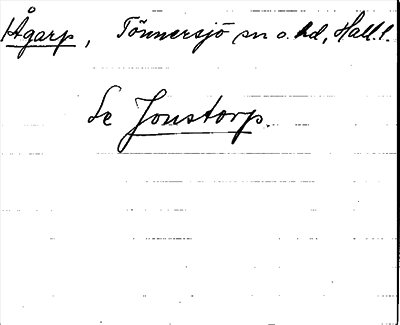 Ågarp, Tönnersjö sn o. hd, Hall. l.
Se Jonstorp.